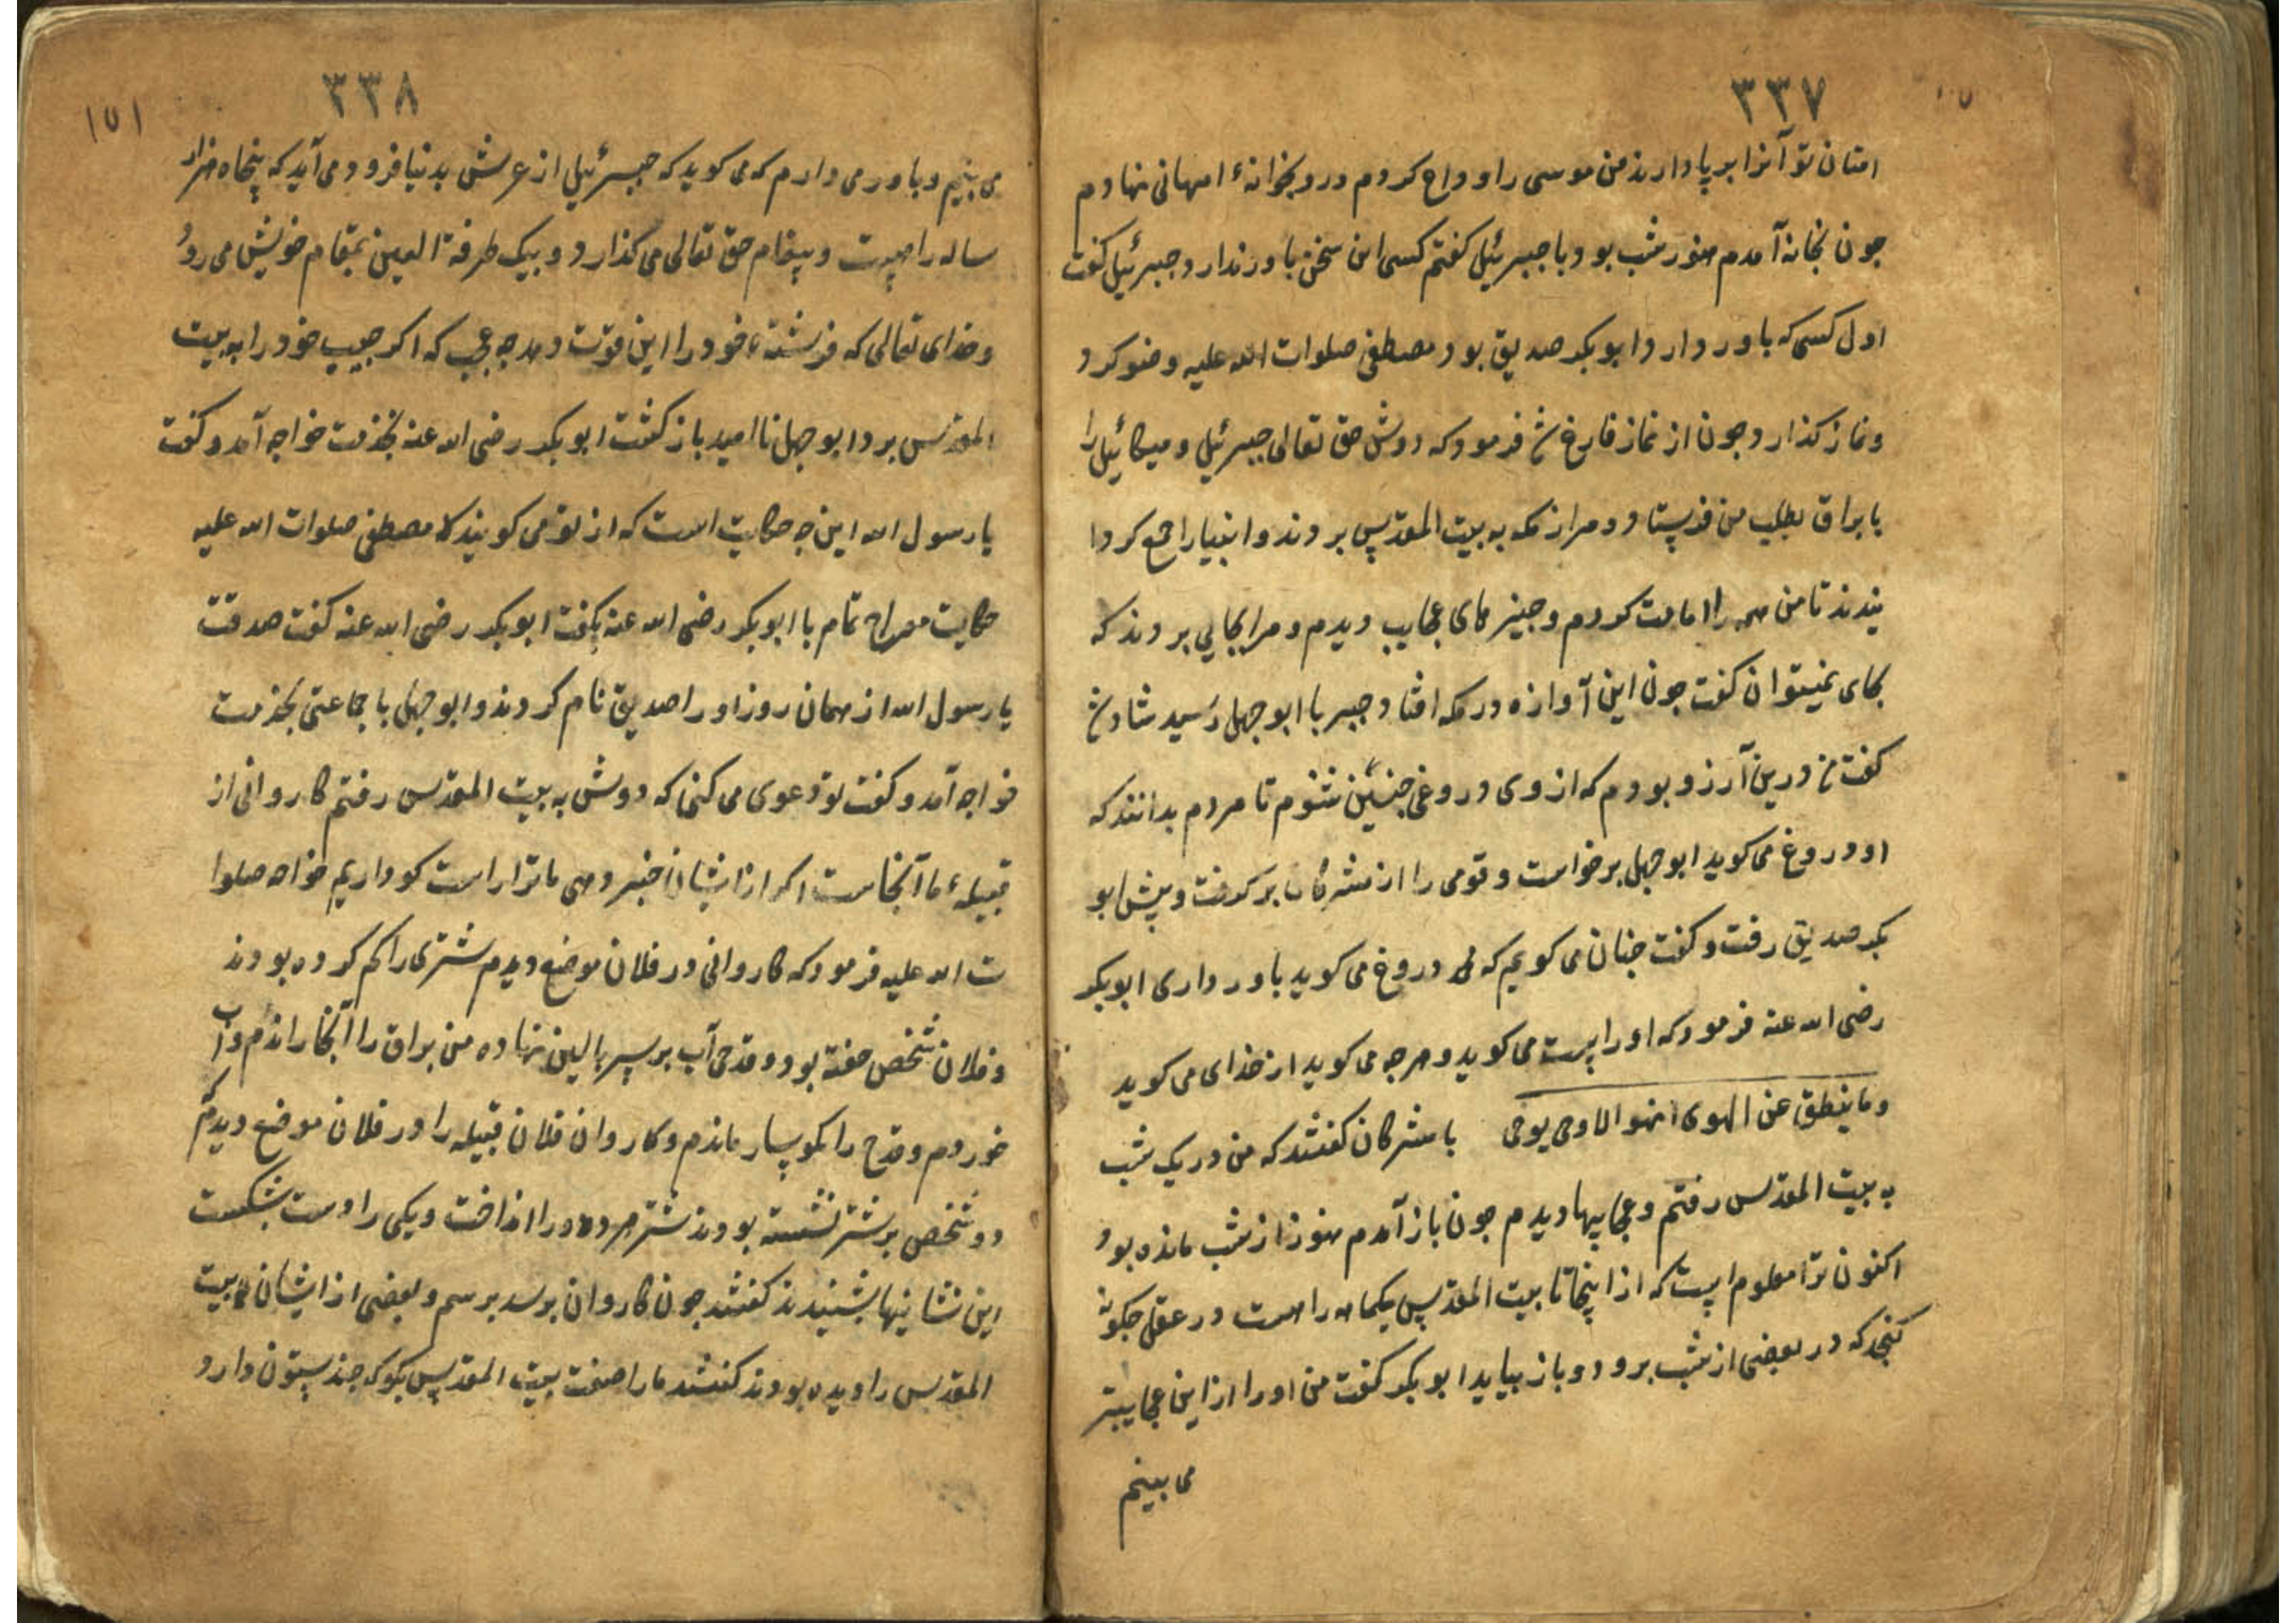 ۳۳۷
امتان تو آنرا برپا دارند من موسی را وداع کردم و رو بخوانهٔ امهانی نهادم
جون بخانه آمدم هنوز شب بود با جبرئیل گفتم کسی این سخن باور ندارد جبرئیل کفت
اول کسی که باور دارد ابوبکر صدیق بود مصطفی صلوات الله علیه وضو کرد
و نماز کذارد جون از نماز فارغ شد فرمود که دوش حق تعالی جبرئیل و میکائیل را
با براق بطلب من فرستاد و مرا از مکه به بیت المقدس بردند و انبیا را جمع کردا
نیدند تا من همه را امامت کردم و جیز های عجایب دیدم و مرا بجایی بردند که
بجای نمیتوان کفت جون این آوازه در مکه افتاد جبر با ابوجهل رسید شاد شد
کفت من درین آرزو بودم که از وی دروغی جنین شنوم تا مردم بدانند که
او دروغ می کوید ابوجهل برخواست و قومی را از مشرکان بر کرفت و پیش ابو
بکر صدیق رفت و کفت جنان می کویم که دروغ می کوید باور داری ابوبکر
رضی الله عنه فرمود که او راست می کوید و هرجه می کوید از خدای می کوید
و ما ینطق عن الهوی ان هو الا وحی یوحی با مشرکان کفتند که من در یک شب
به بیت المقدس رفتم و عجایبها دیدم جون باز آمدم هنوز از شب مانده بود
اکنون ترا معلوم است که از اینجا تا بیت المقدس یکماهه راهست در عقل جکونه
کنجد که در بعضی از شب برود و باز بیاید ابوبکر کفت من او را از این عجایبتر
می بینم
۳۳۸
۱۵۱
می بینم و باور می دارم که می کوید که جبرئیل از عرش بدنیا فرود می آید که پنجاه هزار
ساله راهست و پیغام حق تعالی می کذارد و بیک طرفة العین بمقام خویش می رود
و خدای تعالی که فرشتهٔ خود را این قوت دهد جه عجب که اکر حبیب خود را به بیت
المقدس برد ابوجهل نا امید باز کشت ابوبکر رضی الله عنه بخدمت خواجه آمد و کفت
یا رسول الله این جه حکایت است که از تو می کویند مصطفی صلوات الله علیه
حکایت معراج تمام با ابوبکر رضی الله عنه بکفت ابوبکر رضی الله عنه کفت صدقت
یا رسول الله از همان روز او را صدیق نام کردند و ابوجهل با جماعتی بخدمت
خواجه آمد و کفت تو دعوی می کنی که دوش به بیت المقدس رفتم کاروانی از
قبیلهٔ ما آنجاست اکر از ایشان خبر دهی ما ترا راست کو داریم خواجه صلوا
ت الله علیه فرمود که کاروانی در فلان موضع دیدم شتری را کم کرده بودند
و فلان شخص خفته بود و قدحی آب بر سر بالین نهاده من براق را آنجا راندم و آب
خوردم و قدح را نکوسار ماندم و کاروان فلان قبیله را در فلان موضع دیدم که
دو شخص بر شتر نشسته بودند شتر هر دو را انداخت و یکی را دست بشکست
این نشانیها بشنیدند کفتند جون کاروان برسد برسم و بعضی از ایشان بیت
المقدس را دیده بودند کفتند ما را صفت بیت المقدس بکو که جند ستون دارد